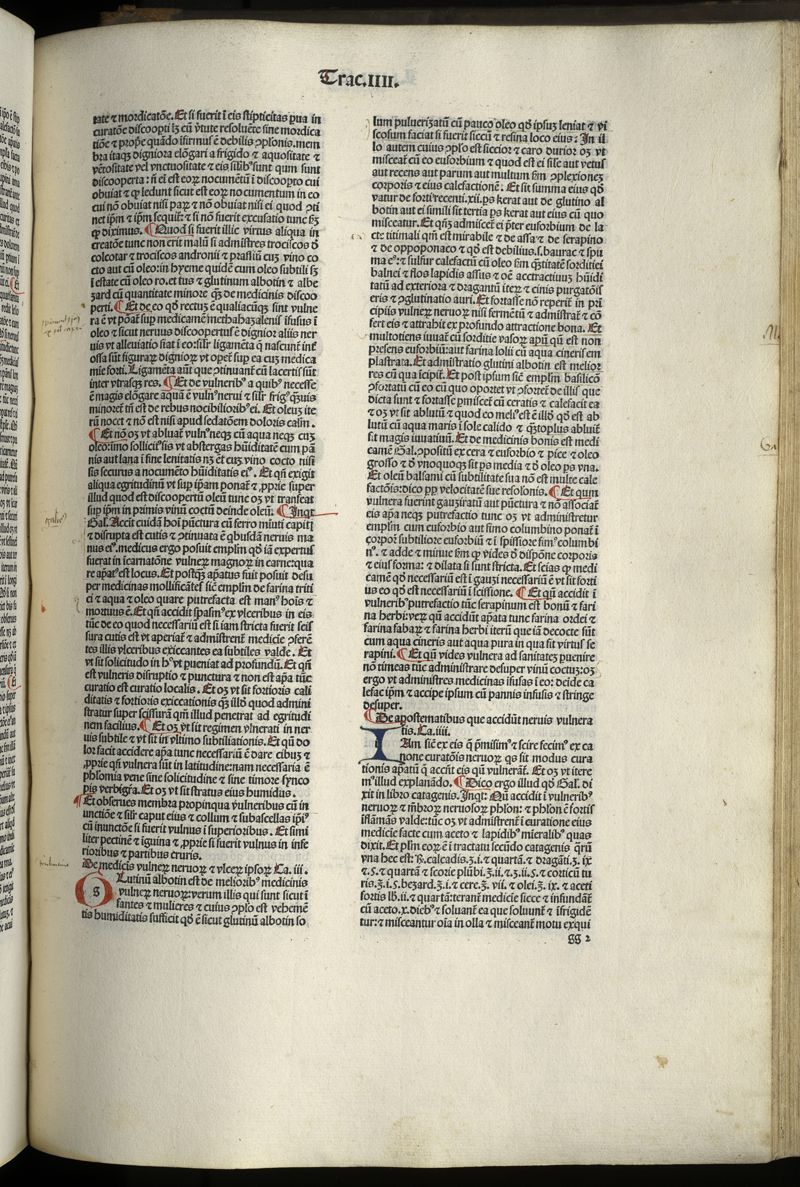 Trac.IIII.
tate ⁊ mordicatõe. Et si fuerit ĩ eis stipticitas pua in
curatõe discoopti lʒ cũ ỹtute resoluẽte sine mordica
tiõe ⁊ prope quãdo ifirmus ẽ debilis ꝯplonis. mem
bra itaqʒ digniora elõgari a frigido ⁊ aquositate ⁊
vẽtositate vel ynctuositate ⁊ eis silibꝰ sunt qum sunt
discooperta: ñ eĩ est eoꝝ nocumẽtũ ĩ discoopto cui
obuiat ⁊ qͥ ledunt sicut est eoꝝ nocumentum in eo
cui nõ obuiat nisi paꝝ ⁊ nõ obuiat nisi ei quod ꝯti
net ipm ⁊ ipm sequit̃: ⁊ si nõ fuerit excusatio tunc fʒ
ꝙ diximus. ¶Quod si fuerit illic virtus aliqua in
creatõe tunc non erit malũ si admĩstres trociscos ð
colcotar ⁊ trociscos andronii ⁊ prassiũ cuʒ vino co
cto aut cũ oleo: in hyeme quidẽ cum oleo subtili sʒ
ĩ estate cũ oleo ro. et tus ⁊ glutinum albotin ⁊ albe
ʒard cũ quantitate minore qʒ de medicinis discoo
perti. ¶Et de eo qð rectuʒ ẽ qualiacũqʒ sint vulne
ra ẽ vt põat̃ sup medicamẽ methahaʒalenis ĩfusis ĩ
oleo ⁊ sicut neruus discoopertus ẽ dignior aliis ner
uis vt alleuiatio fiat ĩ eo: silr̃ ligamẽta q̃ nascunt̃ int̃
ossa sũt figuraʒ dignioꝝ vt opet̃ sup ea cuʒ medica
mie forti. Ligamẽta aũt que ꝯtinuant̃ cũ lacertis sũt
inter vtrasqʒ res. ¶Et de vulneribꝰ a quibꝰ necesse
ẽ magis elõgare aquã ẽ vulnꝰ nerui ⁊ silr̃ frigꝰ qͣuis
minorẽ tñ est de rebus nocibilioribꝰ ei. Et oleuʒ ite
rũ nocet ⁊ nõ est nisi apud sedatõem doloris calm̃.
¶Et nõ oʒ vt abluat̃ vulnꝰ neqʒ cũ aqua neqʒ cuʒ
oleo: imo sollicitꝰ sis vt abstergas hũiditatẽ cum pã
nis aut lana ĩ fine lenitatis nʒ et̃ cuʒ vino cocto nisi
sis securus a nocumẽto hũiditatis eiꝰ. Et qñ exigit
aliqua egritudinũ vt sup ipam ponat̃ ⁊ ꝓprie super
illud quod est discoopertũ oleũ tunc oʒ vt transeat
sup ipm in primis vinũ coctũ deinde oleũ. ¶Inqt
Gal. Accit cuidã hoĩ pũctura cũ ferro ĩmuti capiti
⁊ disrupta est cutis ⁊ ꝯtinuata ẽ qbusdã neruis ma
nus eiꝰ. medicus ergo posuit emplm̃ qð iã expertus
fuerat in ĩcarnatõne vulneꝝ magnoꝝ in carne: qua
re apatꝰ est locus. Et postqʒ apatus fuit posuit desu
per medicinas mollificatẽs sicẽ emplm̃ de farina triti
ci ⁊ aqua ⁊ oleo quare putrefacta est manꝰ hoĩs ⁊
mortuus ẽ. Et qñ accidit spasmꝰ ex vlceribus in eis
tũc de eo quod necessariũ est si iam stricta fuerit scis
sura cutis est vt aperiat̃ ⁊ administrent̃ medicie ꝯferẽ
tes illis vlceribus exiccantes ea subtiles valde. Et
vt sit solicitudo in hꝰ vt pueniat ad profundũ. Et qñ
est vulneris disruptio ⁊ punctura ⁊ non est apa tũc
curatio est curatio localis. Et oʒ vt sit fortioris cali
ditatis ⁊ fortioris exiccationis qʒ illð quod admini
stratur super scissurã qm̃ illud penetrat ad egritudi
nem facilius. ¶Et oʒ vt sit regimen vlnerati in ner
uis subtile ⁊ vt sit in vltimo subtiliationis. Et qũ do
lor facit accidere apa tune necessariũ ẽ dare cibuʒ ⁊
ꝓprie qñ vulnera sũt in latitudine: nam necessaria ẽ
phlomia vene sine solicitudine ⁊ sine timore synco
pis verbigr̃a. Et oʒ vt sit stratus eius humidus.
¶Et obserues membra propinqua vulneribus cũ in
unctiõe ⁊ silr̃ caput eius ⁊ collum ⁊ subascellas ipꝰ
cũ inunctõe si fuerit vulnus ĩ superioribus. Et simi
liter pectinẽ ⁊ iguina ⁊ ꝓprie si fuerit vulnus in infe
rioribus ⁊ partibus cruris.
De medicis vulneꝝ neruoꝝ ⁊ vlceꝝ ipsoꝝ Ca. iii.
Glutinũ albotin est de melioribꝰ medicinis
vulneꝝ neruoꝝ: verum illis qui sunt sicut ĩ
fantes ⁊ mulieres ⁊ cuius ꝯplo est vehemẽ
tis humiditatis sufficit qð ẽ sicut glutinũ albotin so
lum pulueriʒatũ cũ pauco oleo qð ipsuʒ leniat ⁊ vi
scosum faciat si fuerit siccũ ⁊ resina loco eius: In il
lo autem cuius ꝯplo est siccior ⁊ caro durior oʒ vt
misceat̃ cũ eo euforbium ⁊ quod est ei sile aut vetus
aut recens aut parum aut multum fm̃ ꝯplexiones
corporis ⁊ eius calefactionẽ. Et sit summa eius qð
vatur de forti recenti. xii. ps kerat aut de glutino al
botin aut ei simili sit tertia ps kerat aut eius cũ quo
misceatur. Et qñʒ admiscet̃ ei p̃ter euforbium de la
cte titimali qm̃ est mirabile ⁊ de assa ⁊ de serapino
⁊ de oppoponaco ⁊ qð est debilius. s. baurac ⁊ spu
ma eꝰ: ⁊ sulfur calefactũ cũ oleo fm̃ qͣtitatẽ sorditiei
balnei ⁊ flos lapidis assius ⁊ oẽ acctractiuuʒ hũidi
tatũ ad exteriora ⁊ dragantũ iteꝝ ⁊ cinis purgatõis
eris ⁊ ꝯglutinatio auri. Et fortasse nõ reperit̃ in pri
cipiis vulneꝝ neruoꝝ nisi fermẽtũ ⁊ admistrat̃ ⁊ cõ
fert eis ⁊ attrahit ex profundo attractione bona. Et
multotiens iuuat̃ cũ sorditie vasoꝝ apũ qũ est non
presens euforbiũ: aut farina lolii cũ aqua cineris em
plastrata. Et admistratio glutini albotin est melior
res cũ qua ĩcipit̃. Et post ipsum sicẽ emplm̃ basilicõ
ꝯfortatũ cũ eo cũ quo oportet vt ꝯfortet̃ de illis que
dicta sunt ⁊ fortasse pmiscet̃ cũ ceratis ⁊ calefacit ea
⁊ oʒ vt sit ablutũ ⁊ quod eo meliꝰ est ẽ illð qð est ab
lutũ cũ aqua maris ĩ sole calido ⁊ qͣtoplus abluit̃
fit magis iuuatiuũ. Et de medicinis bonis est medi
camẽ Gal. ꝯpositũ ex cera ⁊ euforbio ⁊ pice ⁊ oleo
grosso ⁊ ð vnoquoqʒ sit ps media ⁊ ð oleo ps vna.
Et oleũ balsami cũ subtilitate sua nõ est multe cale
factõis: dico pp velocitatẽ sue resolonis. ¶Et qum
vulnera fuerint gauʒiratũ aut pũctura ⁊ nõ associat̃
eis apa neqʒ putrefactio tunc oʒ vt administretur
emplm̃ cum euforbio aut fimo columbino ponat̃ ĩ
corpoĩ subtiliore euforbiũ ⁊ ĩ spissiore fimꝰ columbi
nꝰ. ⁊ adde ⁊ minue fm̃ ꝙ vides ð dispõne corporis
⁊ eius forma: ⁊ dilata si sunt stricta. Et scias ꝙ medi
camẽ qð necessariũ est ĩ gauʒi necessariũ ẽ vt sit forti
us eo qð est necessariũ ĩ scissione. ¶Et qñ accidit ĩ
vulneribꝰ putrefactio tũc serapinum est bonũ ⁊ fari
na herbi: veꝝ qũ accidũt apata tunc farina ordei ⁊
farina fabaꝝ ⁊ farina herbi iterũ que iã decocte sũt
cum aqua cineris aut aqua pura in qua sit virtus se
rapini. ¶Et qũ vides vulnera ad sanitateʒ puenire
nõ timeas tũc administrare desuper vinũ coctuʒ: oʒ
ergo vt admistres medicinas ĩfusas ĩ eo: deide ca
lefac ipm̃ ⁊ accipe ipsum cũ pannis infusis ⁊ stringe
desuper.
¶De apostematibus que accidũt neruis vulnera
tis. Ca. iiii.
IAm sicẽ ex eis q̃ p̃misimꝰ ⁊ scire fecimꝰ ex ca
none curatõis neruoꝝ qs sit modus cura
tionis apatũ q̃ accñt eis qũ vulnerãt̃. Et oʒ vt itere
mꝰ illud explanãdo. ¶Dico ergo illud qð Gal. di
xit in libro catagenis. Inqt: Qũ accidit ĩ vulneribꝰ
neruoꝝ ⁊ mẽbroꝝ neruosoꝝ phlon: ⁊ phlon ẽ fortis
ĩflãmãs valde: tũc oʒ vt admistrent̃ ĩ curatione eius
medicie facte cum aceto ⁊ lapidibꝰ mĩeralibꝰ quas
dixit. Et plm̃ eoꝝ ẽ ĩ tractatu secũdo catagenis qrũ
vna hec est: ℞. calcadis. ʒ. i. ⁊ quartã. ⁊ dragãti. ʒ. ix
⁊. s. ⁊ quartã ⁊ scorie plũbi. ʒ. ii. ⁊. ʒ. ii. s. ⁊ corticũ tu
ris. ʒ. i. s. beʒard. ʒ. i. ⁊ cere. ʒ. vii. ⁊ olei. ʒ. ix. ⁊ aceti
fortis lb. ii. ⁊ quartã: terant̃ medicie sicce ⁊ infundãt̃
cũ aceto. x. diebꝰ ⁊ soluant̃ ea que soluunt̃ ⁊ ĩfrigidẽ
tur: ⁊ misceantur oĩa in olla ⁊ misceant̃ motu exqui
gg 2